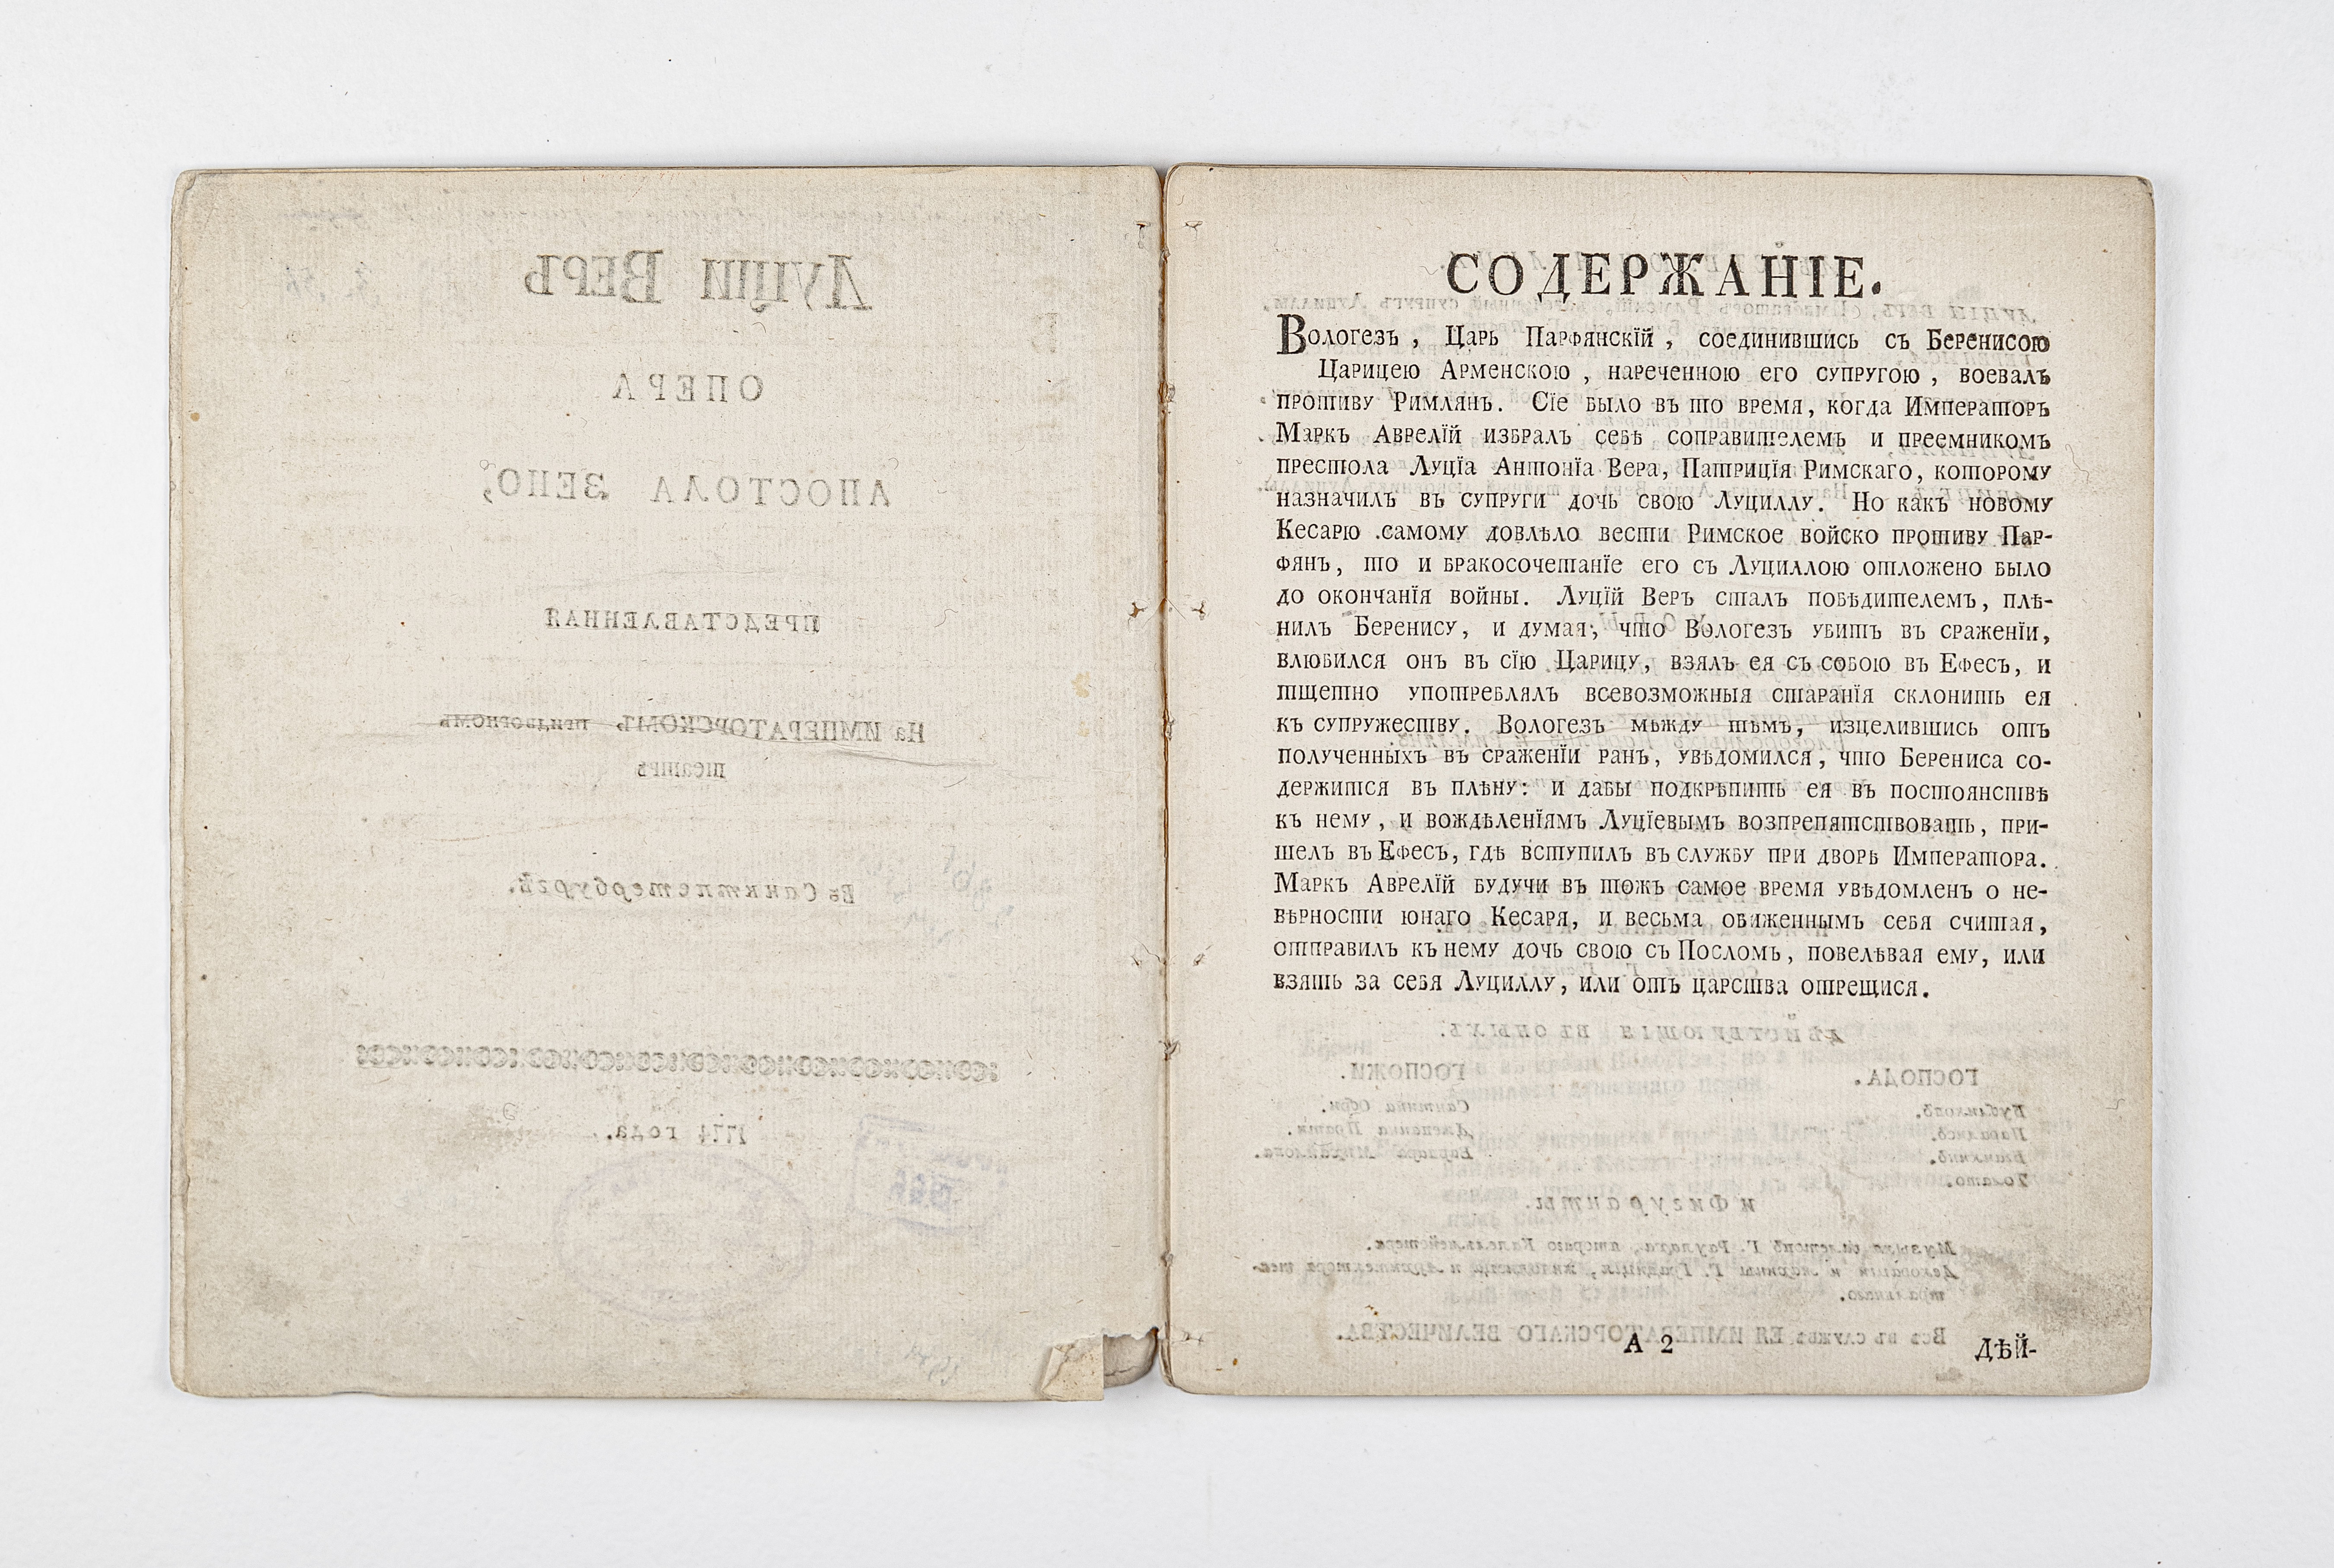 Луцій Веръ
ОПЕРА
АПОСТОЛА ЗЕНО,
ПРЕДСТАВЛЕННАЯ
На ИМПЕРАТОРСКОМЪ придворномъ
театрѣ
Въ Санктпетербургѣ.
1774 года.
СОДЕРЖАНІЕ.
Вологезъ , Царь Парѳянскїй , соединившись съ Беренисою
Царицею Арменскою , нареченною его супругою , воевалъ
противу Римлянъ. Сїе было въ то время, когда Императоръ
Маркъ Аврелїй избралъ себѣ соправителемъ и преемникомъ
престола Луцїа Антонїа Вера, Патрицїя Римскаго, которому
назначилъ въ супруги дочь свою Луциллу. Но какъ новому
Кесарю самому довлѣло вести Римское войско противу Пар-
ѳянъ, то и бракосочетанїе его съ Луциллою отложено было
до окончанїя войны. Луцїй Веръ сталъ побѣдителемъ, плѣ-
нилъ Беренису, и думая, что Вологезъ убитъ въ сраженїи,
влюбился онъ въ сїю Царицу, взялъ ея съ собою въ Ефесъ, и
тщетно употреблялъ всевозможныя старанїя склонить ея
къ супружеству. Вологезъ между тѣмъ, изцелившись отъ
полученныхъ въ сраженїи ранъ, увѣдомился, что Берениса со-
держится въ плѣну: и дабы подкрѣпить ея въ постоянствѣ
къ нему, и вождѣленїямъ Луцїевымъ возпрепятствовать, при-
шелъ въ Ефесъ, гдѣ вступилъ въ службу при дворѣ Императора.
Маркъ Аврелїй будучи въ тожъ самое время увѣдомленъ о не-
вѣрности юнаго Кесаря, и весьма обиженнымъ себя считая,
отправилъ къ нему дочь свою съ Посломъ, повелѣвая ему, или
взять за себя Луциллу, или отъ царства отрещися.
ДѢЙСТВУЮЩІЯ ВЪ ОНЫХЪ.
ГОСПОДА. ГОСПОЖИ.
и Фигуранты.
Всѣ въ службѣ ЕЯ ИМПЕРАТОРСКАГО ВЕЛИЧЕСТВА.
А 2 ДѢЙ-